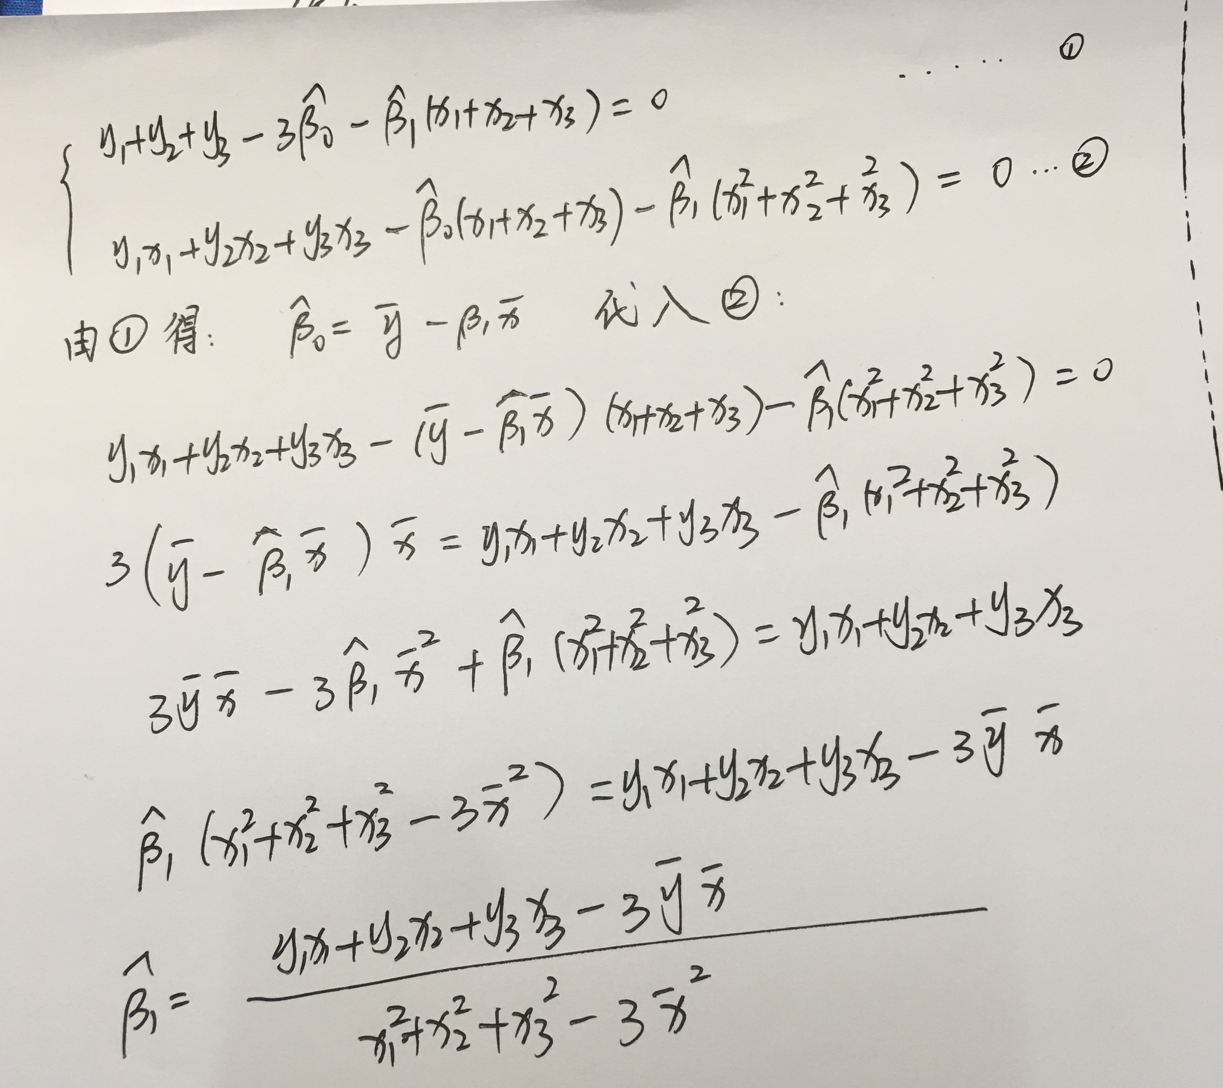 y₁+y₂+y₃ − 3β̂₀ − β̂₁(x₁+x₂+x₃) = 0 ..... ①
y₁x₁+y₂x₂+y₃x₃ − β̂₀(x₁+x₂+x₃) − β̂₁(x₁²+x₂²+x₃²) = 0 ... ②
由①得: β̂₀ = ȳ − β₁x̄ 代入②:
y₁x₁+y₂x₂+y₃x₃ − (ȳ − β̂₁x̄)(x₁+x₂+x₃) − β̂₁(x₁²+x₂²+x₃²) = 0
3(ȳ − β̂₁x̄)x̄ = y₁x₁+y₂x₂+y₃x₃ − β̂₁(x₁²+x₂²+x₃²)
3ȳx̄ − 3β̂₁x̄² + β̂₁(x₁²+x₂²+x₃²) = y₁x₁+y₂x₂+y₃x₃
β̂₁(x₁²+x₂²+x₃² − 3x̄²) = y₁x₁+y₂x₂+y₃x₃ − 3ȳx̄
y₁x₁+y₂x₂+y₃x₃ − 3ȳx̄
β̂₁ =
x₁²+x₂²+x₃² − 3x̄²